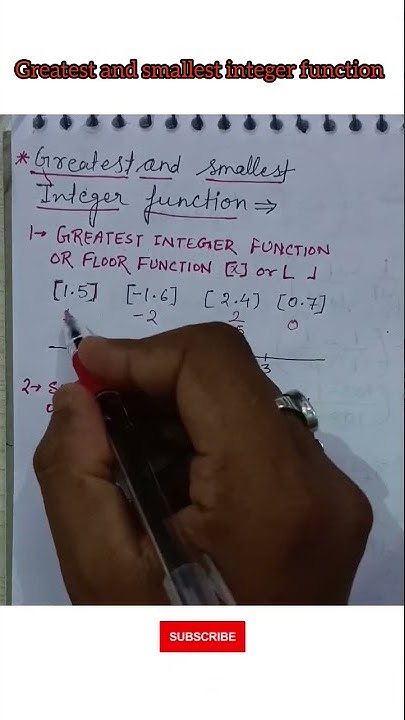 Greatest and smallest integer function
* Greatest and smallest
Integer function ⇒
1→ GREATEST INTEGER FUNCTION
OR FLOOR FUNCTION [x] or L ⅃
[1.5] [-1.6] [2.4) [0.7]
-2 2 0
3
2→ S
SUBSCRIBE